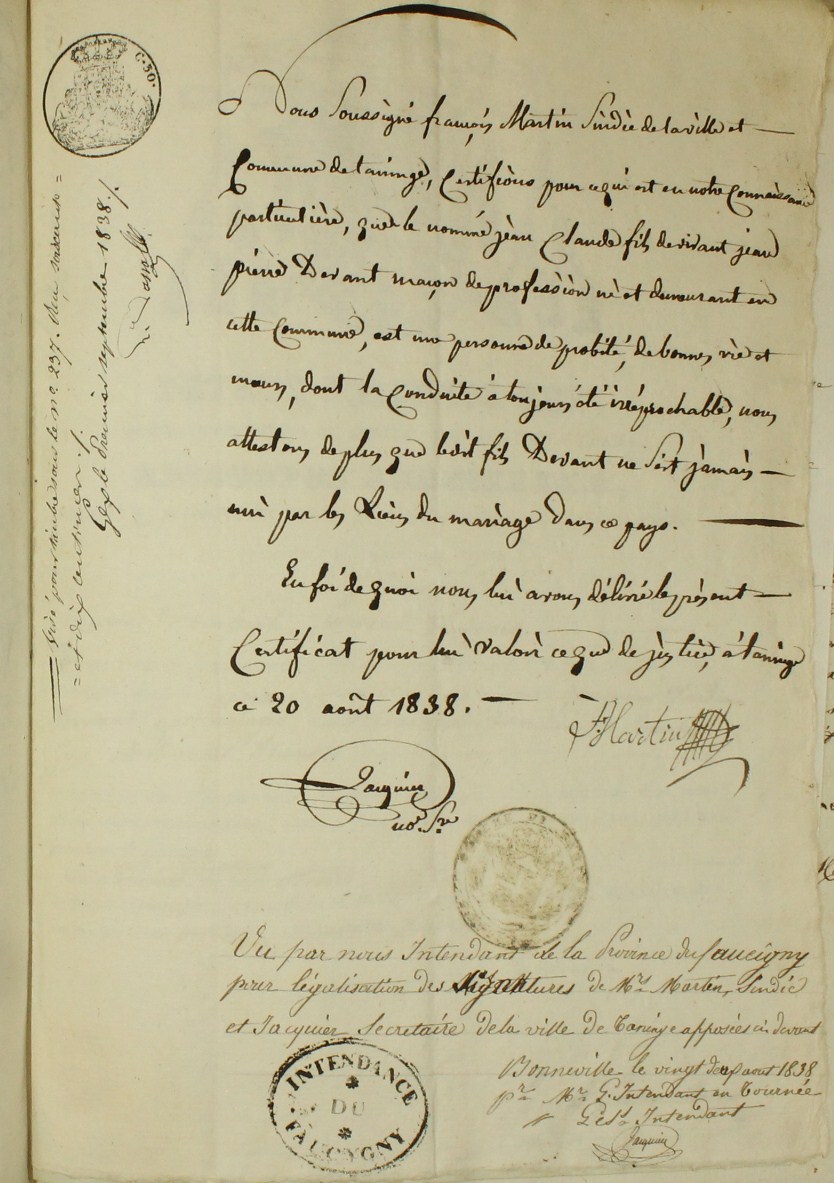 C. 50.
Nous Soussigné françois Martin Sindic de la ville et
Commune de taninge, Certifions pour ce qui est en notre Connaissance
particulière, que le nommé jean Claude fils de vivant jean
pierre Devant maçon de profession né et demeurant en
cette Commune, est une personne de probité, de bonnes vie et
mœurs, dont la Conduite à toujours été irréprochable, nous
attestons de plus que ledit fils Devant ne s'est jamais
uni par les Liens du mariage Dans ce pays.
En foi de quoi nous lui avons délivré le présent
Certificat pour lui valoir ce que de justice, à taninge
ce 20 août 1838.
F. Martin
Jacquier
no.re S.re
Visé pour timbre sous le n.o 237. Reçu soixante
et dix centimes ./.
Gex le Premier septembre 1838 ./.
Vu par nous Intendant de la Province du faucigny
pour légalisation des Signatures de M.rs Martin, Sindic
et Jacquier Secretaire de la ville de Taninge apposées ci devant
Bonneville le vingt deux aout 1838
p.r M.r l'Intendant en Tournée
Intendant
Jacquier
INTENDANCE
DU
FAUCYGNY